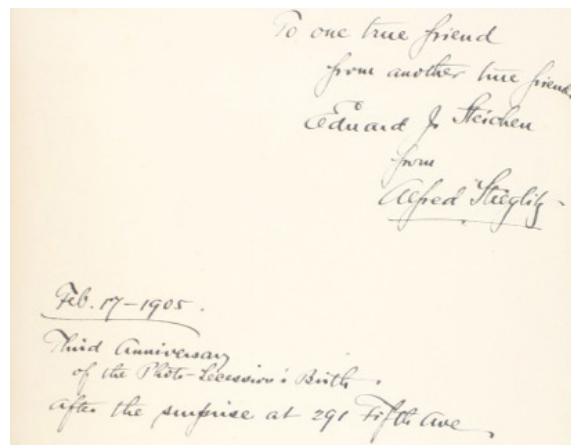 To one true friend
from another true friend.
Eduard J. Steichen
from
Alfred Stieglitz
Feb. 17-1905.
Third Anniversary
of the Photo-Secession's Birth.
After the surprise at 291 Fifth Ave